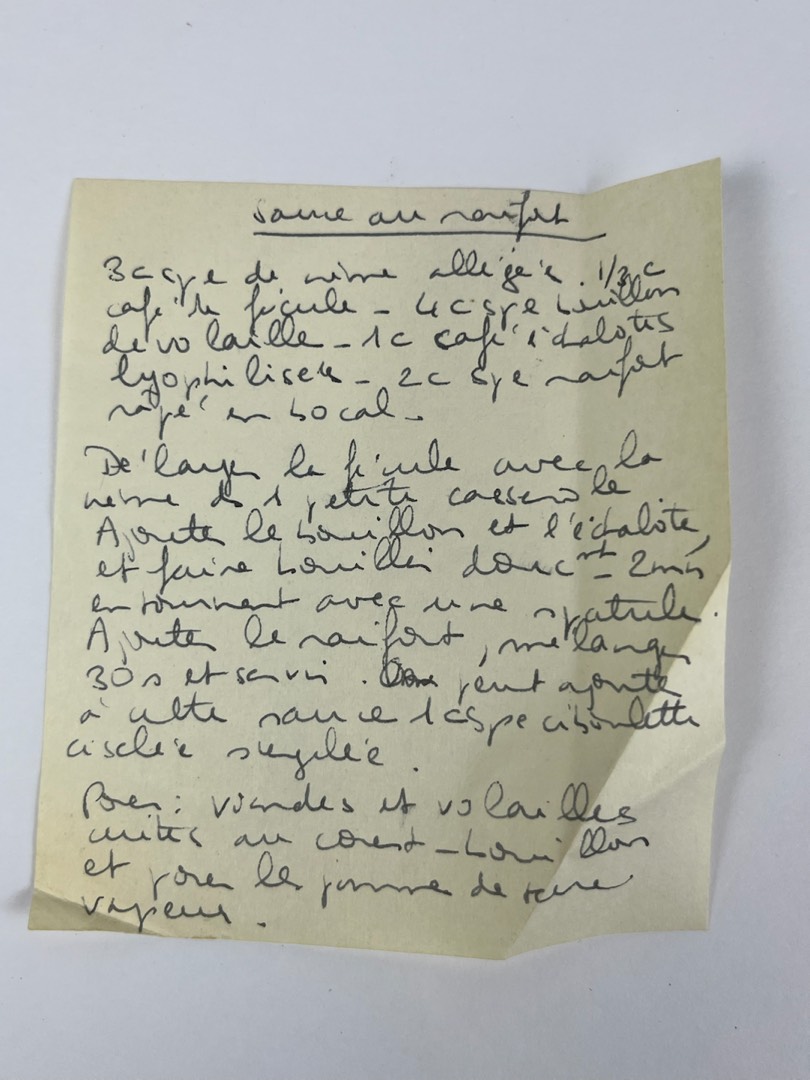 Sauce au raifort
3 c spe de crème allégée. 1/2 c
café de fécule - 4 c spe bouillon
de volaille - 1 c café échalotes
lyophilisées - 2 c spe raifort
râpé en bocal -
Délayer la fécule avec la
crème ds 1 petite casserole.
Ajouter le bouillon et l'échalote,
et faire bouillir doucmt - 2 mn
en tournant avec une spatule.
Ajouter le raifort, mélanger
30 s et servir. On peut ajouter
à cette sauce 1 c spe ciboulette
ciselée surgelée.
Pour : viandes et volailles
cuites au court-bouillon
et pour les pommes de terre
vapeur.